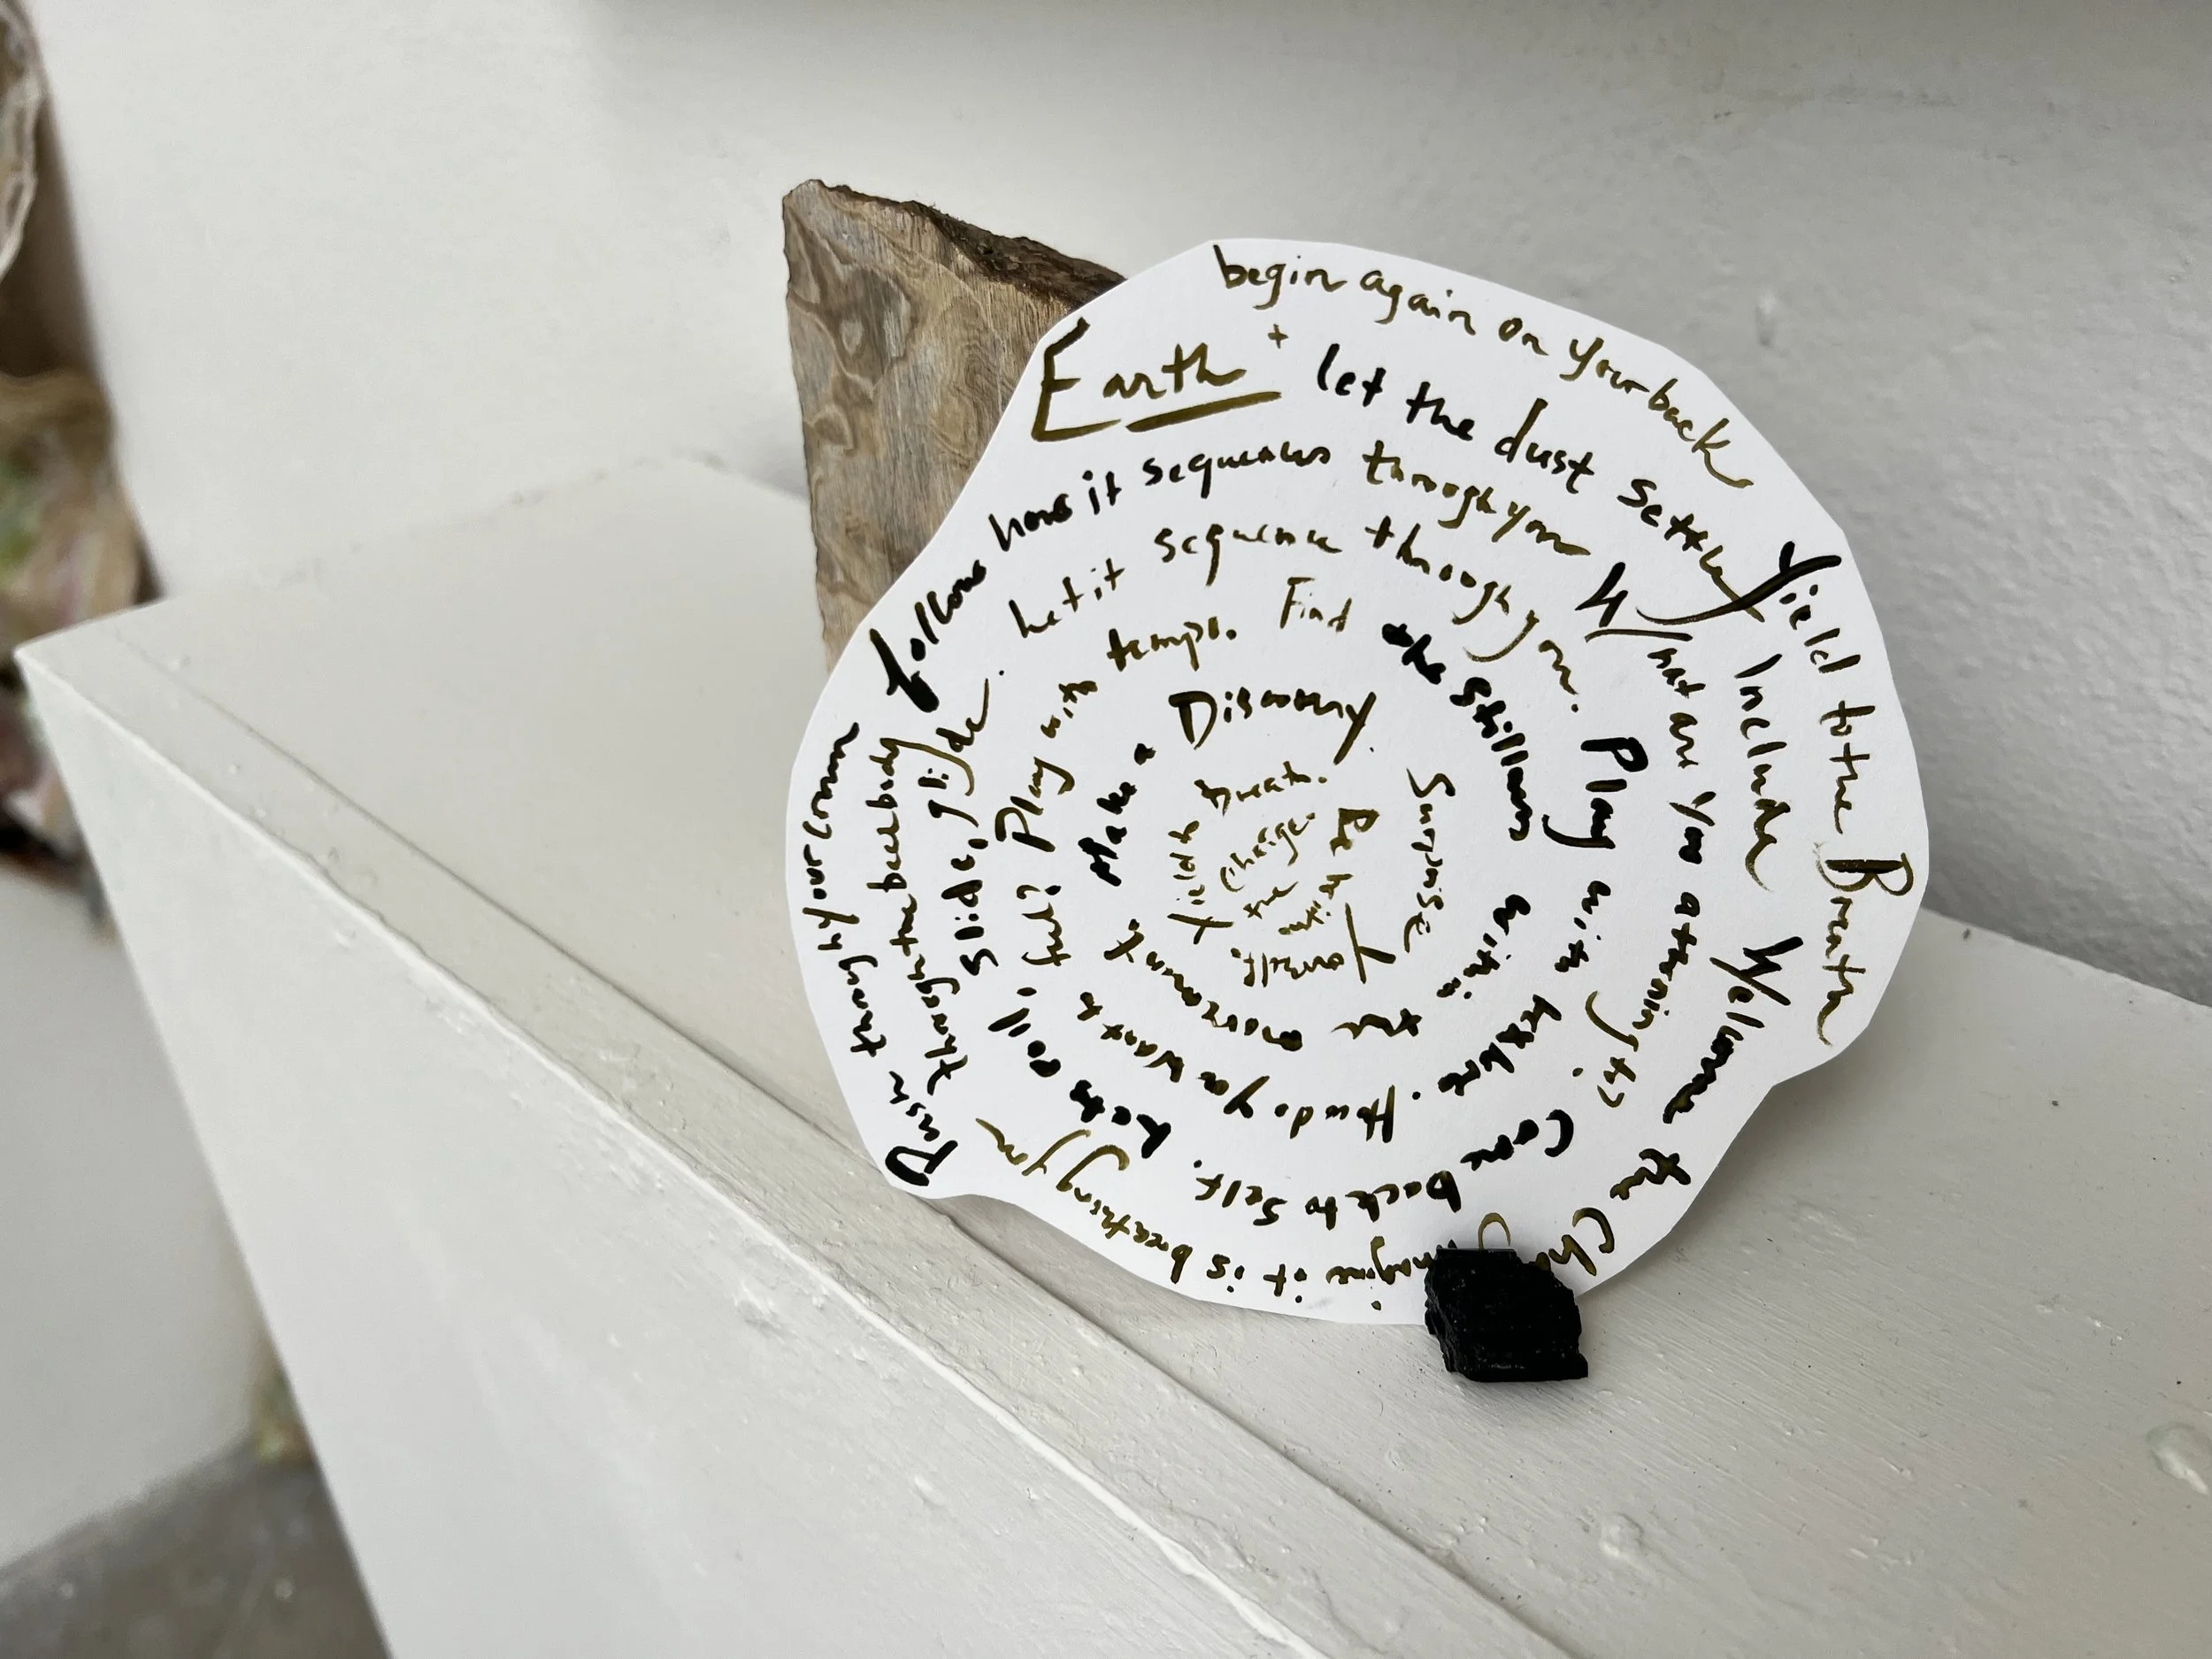 Earth
begin again on your back
+ let the dust settle
Yield to the Breath
Include
Welcome the Cha
imagine it is breathing you
Push through your
through the back body
follow how it sequences through you
What are you attending to?
Come back to self.
Let's roll, slide, glide.
Let it sequence through you.
Play with
How do you want to feel?
Play with tempo.
Find the stillness within the movement.
Make a Discovery.
Surprise Yourself.
Yield + treat.
Be the change.